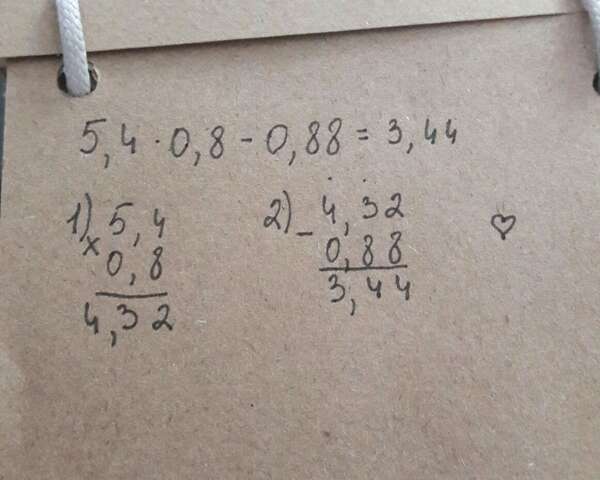 5,4 · 0,8 - 0,88 = 3,44
1) 5,4
× 0,8
4,32
2) 4,32
- 0,88
3,44
♡